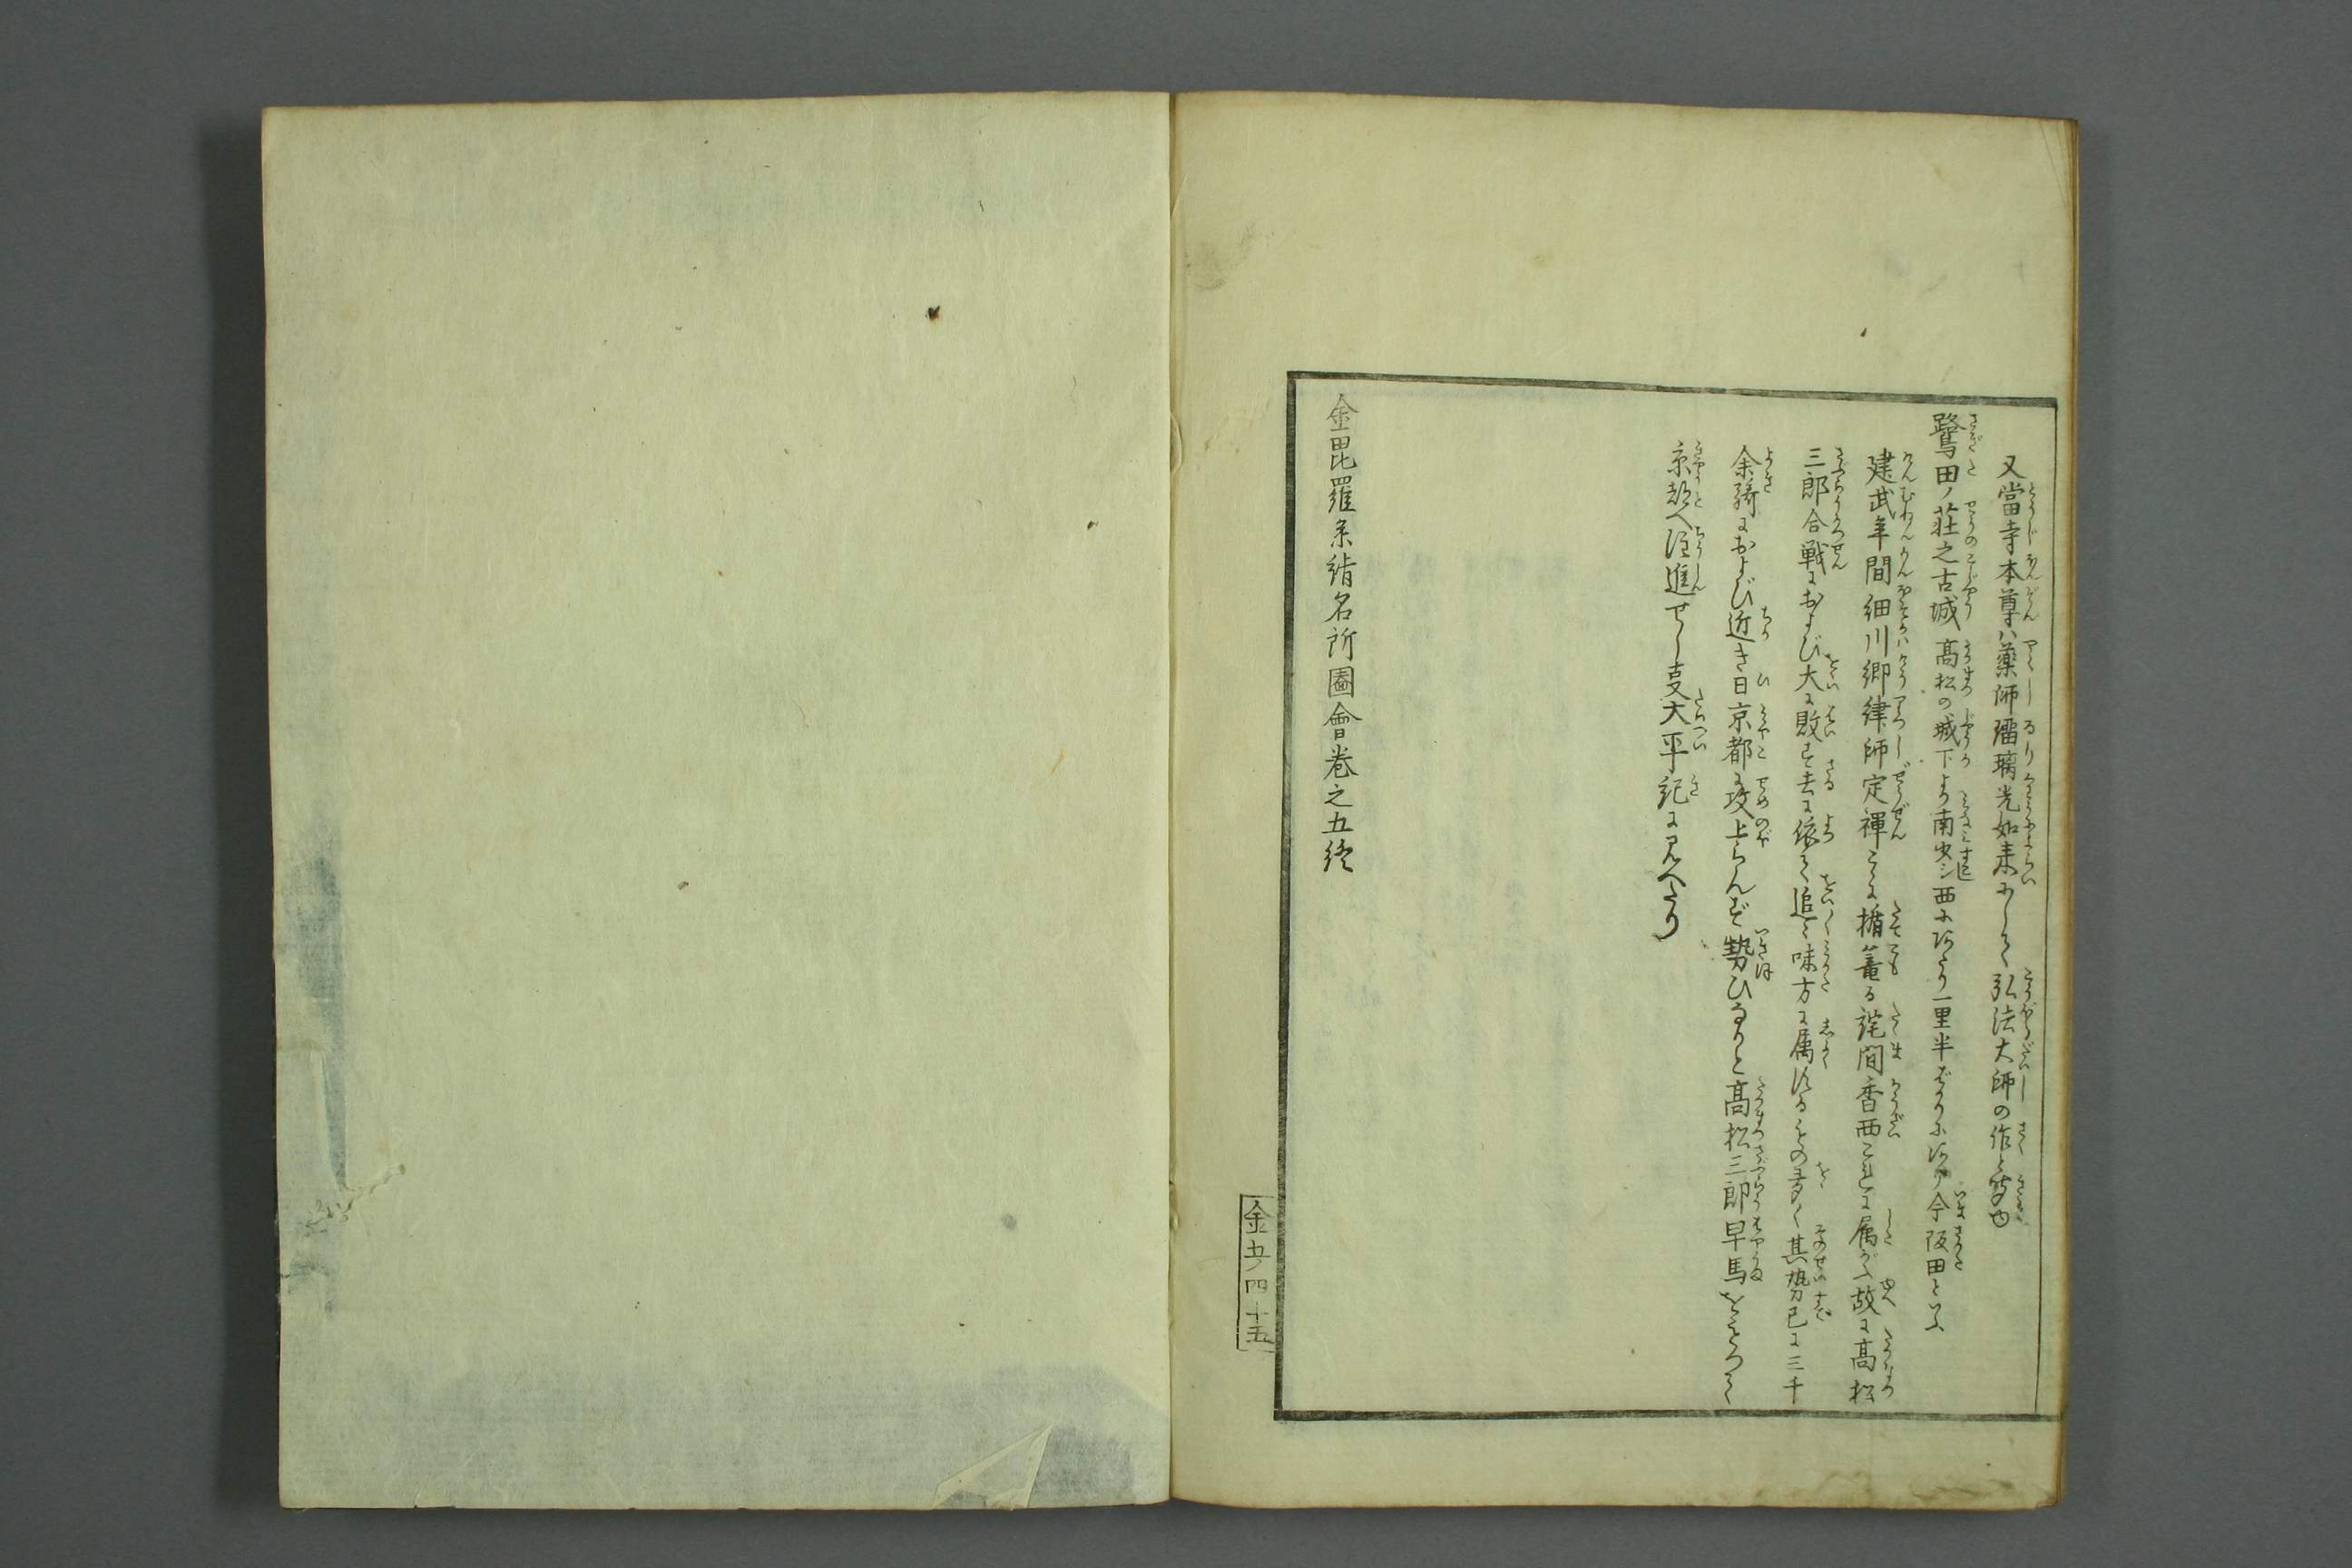 又當寺本尊ハ藥師瑠璃光如来にして弘法大師の作と聞ゆ
鷺田ノ荘之古城 髙松の城下より南少シ西にあたり一里半ばかりにあり今阪田といふ
建武年間細川郷律師定禪こゝに楯篭る詫間香西これに属がふ故に髙松
三郎合戦におよび大に敗す去に依て追々味方に属けるもの多く其勢已に三千
余騎におよび近き日京都に攻上らんず勢ひなりと髙松三郎早馬をもつて
京都へ注進せし支大平記に見へたり
金毘羅参詣名所圖會巻之五終
金五ノ四十五